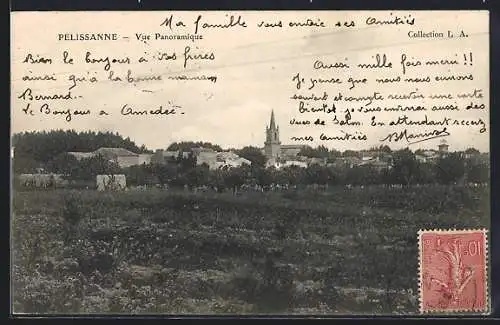 Ma famille vous envoie ses amitiés
PELISSANNE - Vue Panoramique
Collection L. A.
Bien le bonjours à vos frères
ainsi qu'à la bonne maman
Bernard..
le bonjours a Amedée.
Aussi mille fois merci !!
Je pense que nous nous
souvent et compte recevoir une carte
bientôt je vous enverrai aussi des
vues de Salon. En attendant recevez
mes amitiés.
10c